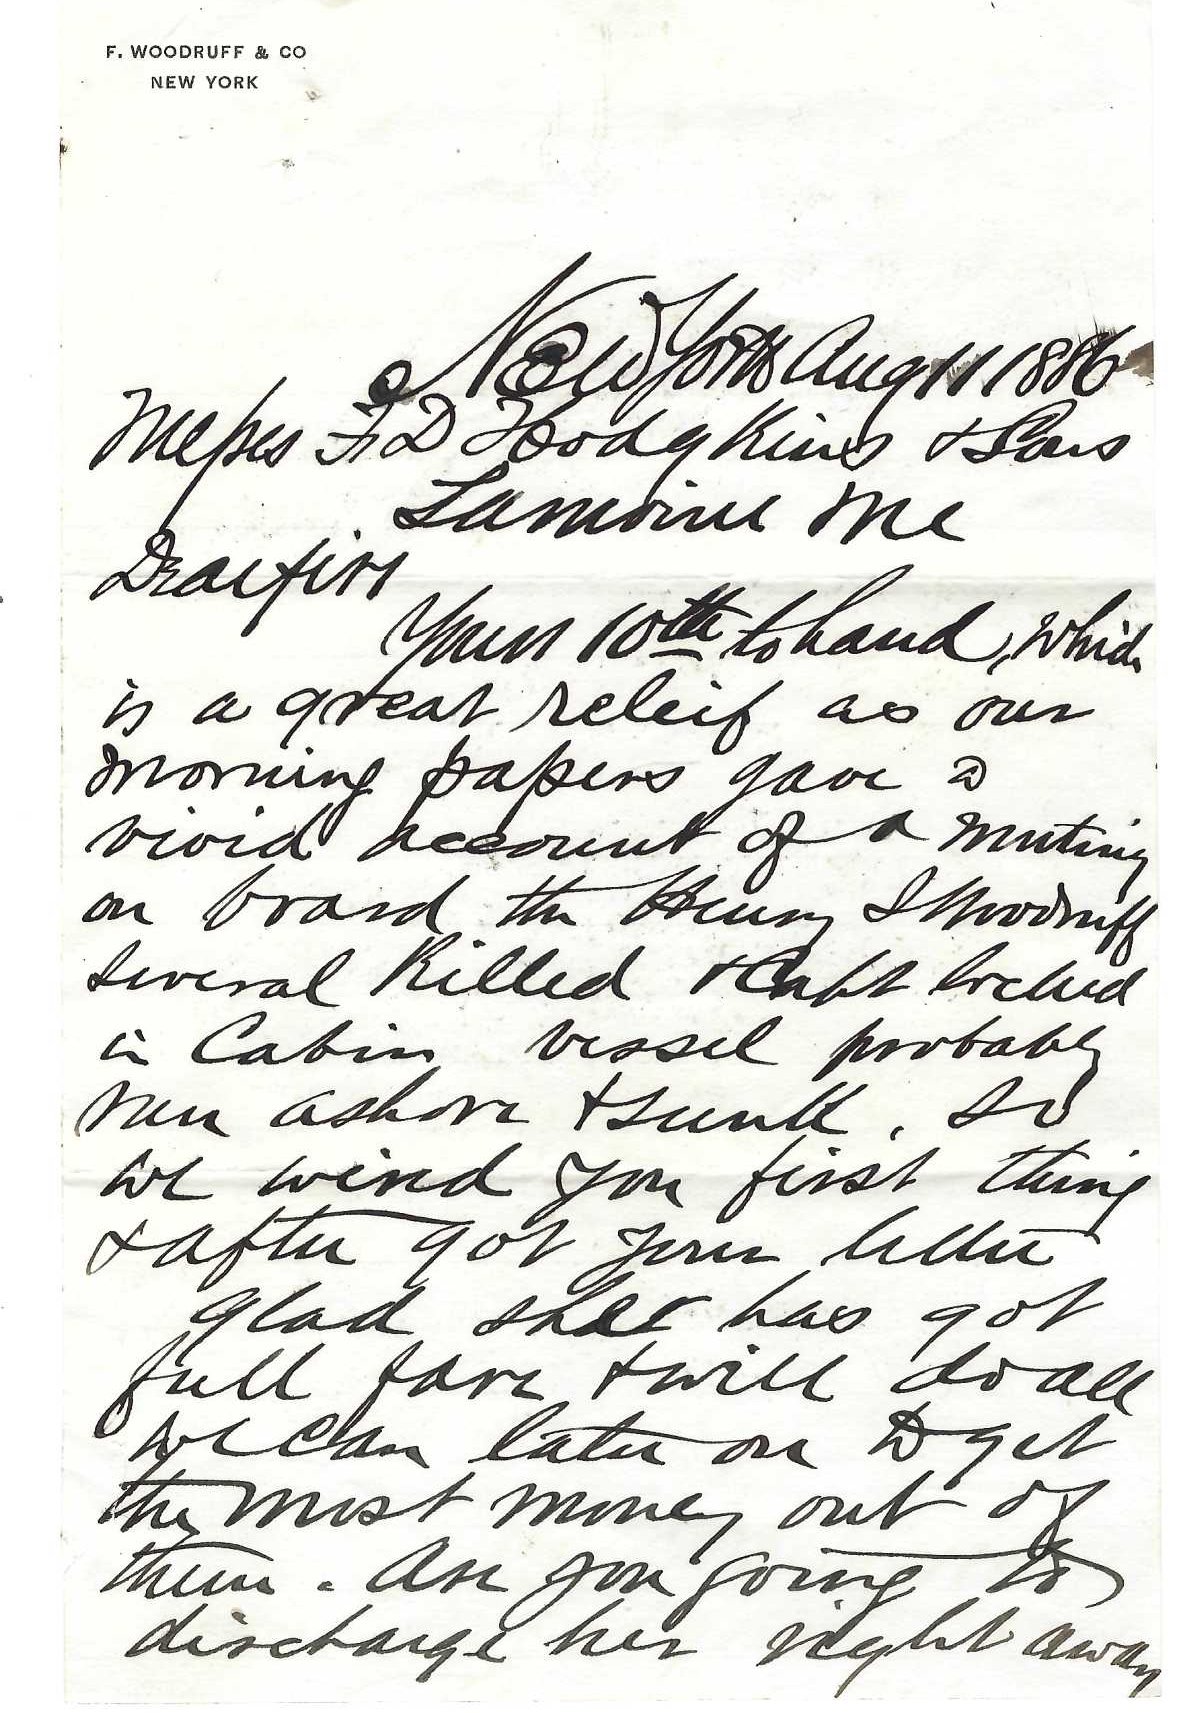 F. WOODRUFF & CO
NEW YORK
New York Aug 11 1886
Messes F. D Hodgkins & Sons
Lamoine Me
Dear Sirs
Yours 10th to hand, which
is a great releif as our
morning papers gave a
vivid account of a mutiny
on board the Henry S Woodruff
several Killed & Capt locked
in Cabin vessel probably
run ashore & sunk. So
we wired you first thing
& after got your letter
glad she has got
full fare & will do all
we can later on to get
the most money out of
them. Are you going to
discharge her right away